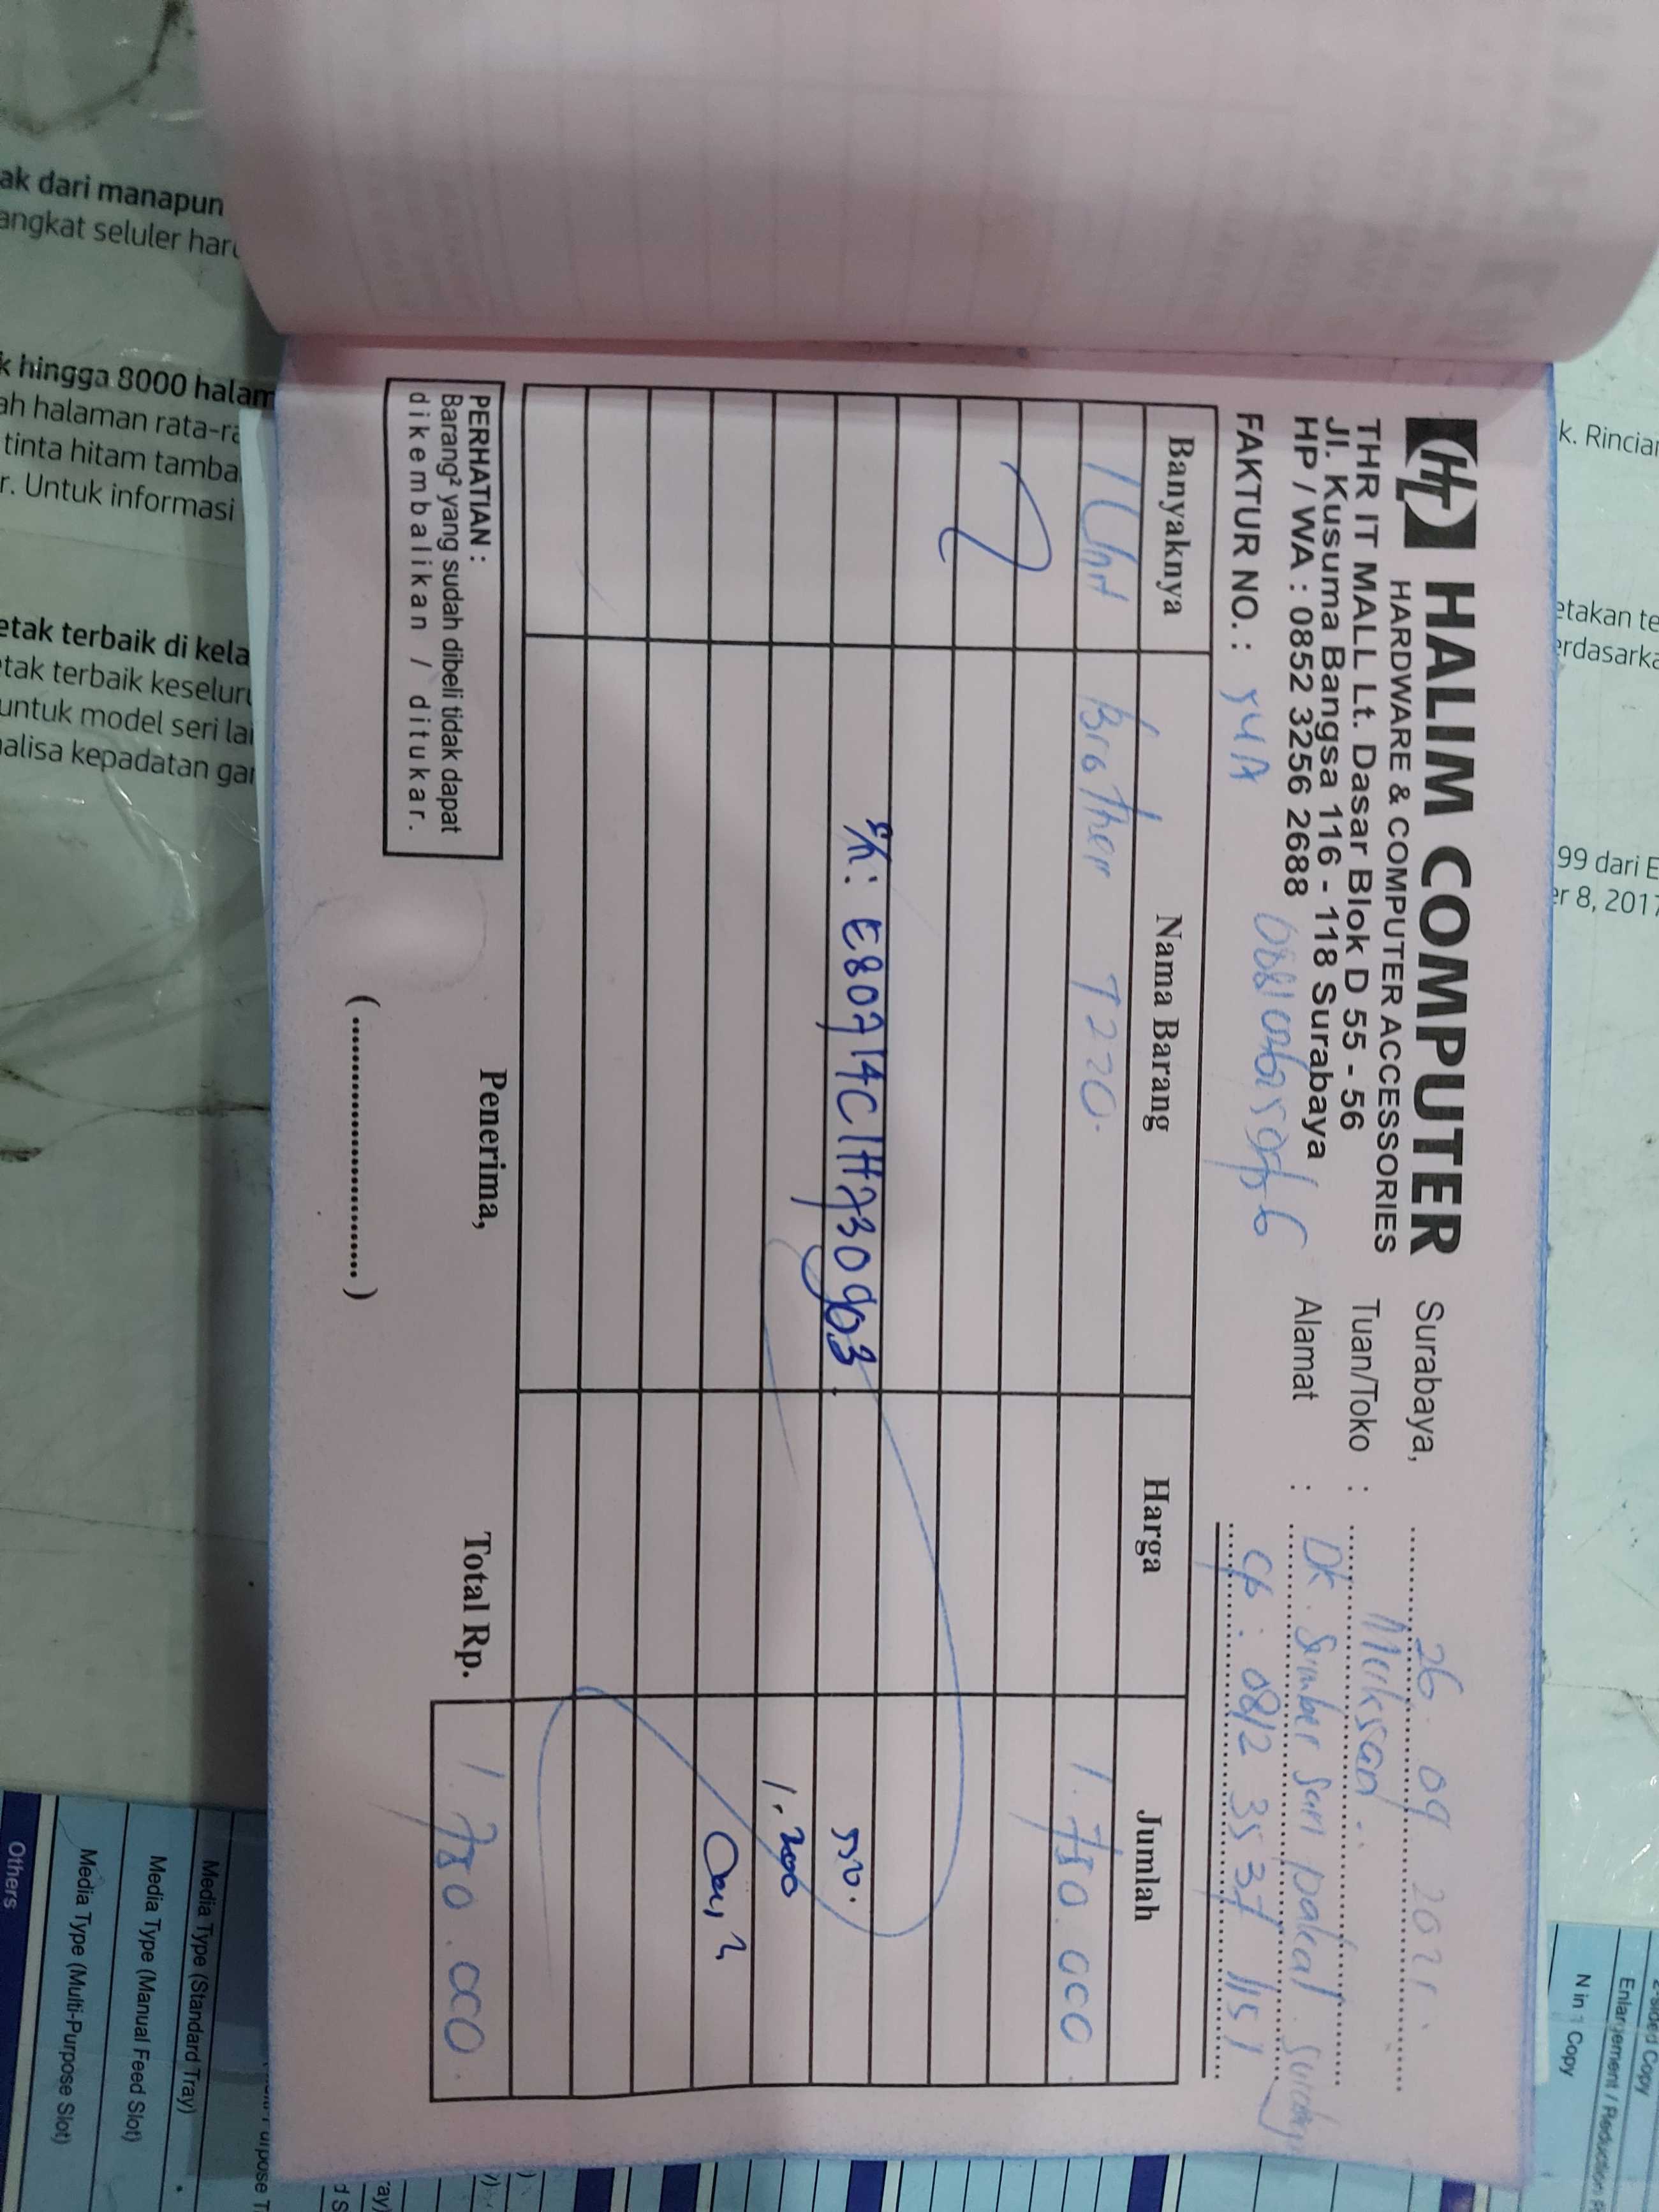 HT HALIM COMPUTER
HARDWARE & COMPUTER ACCESSORIES
THR IT MALL Lt. Dasar Blok D 55 - 56
Jl. Kusuma Bangsa 116 - 118 Surabaya
HP / WA : 0852 3256 2688
FAKTUR NO. :
Surabaya, 26 09 2021
Tuan/Toko : Merksan
Alamat : Dk. Sumber sari pakal
Cp : 0812 3537 1151
Banyaknya Nama Barang Harga Jumlah
1 Unit Brother T220. 1.750.000
S/N: E80714C1H730903 550.
1.200
Total Rp. 1.750.000
Penerima,
(........................)
PERHATIAN :
Barang² yang sudah dibeli tidak dapat
dikembalikan / ditukar.
ak dari manapun
angkat seluler haru
k hingga 8000 halam
ah halaman rata-ra
tinta hitam tamba
r. Untuk informasi
etak terbaik di kela
tak terbaik keseluru
untuk model seri lai
nalisa kepadatan gar
k. Rincian
etakan te
erdasarka
99 dari E
er 8, 2017
2-sided Copy
Enlargement / Reduction
N in 1 Copy
Media Type (Standard Tray)
Media Type (Manual Feed Slot)
Media Type (Multi-Purpose Slot)
Others